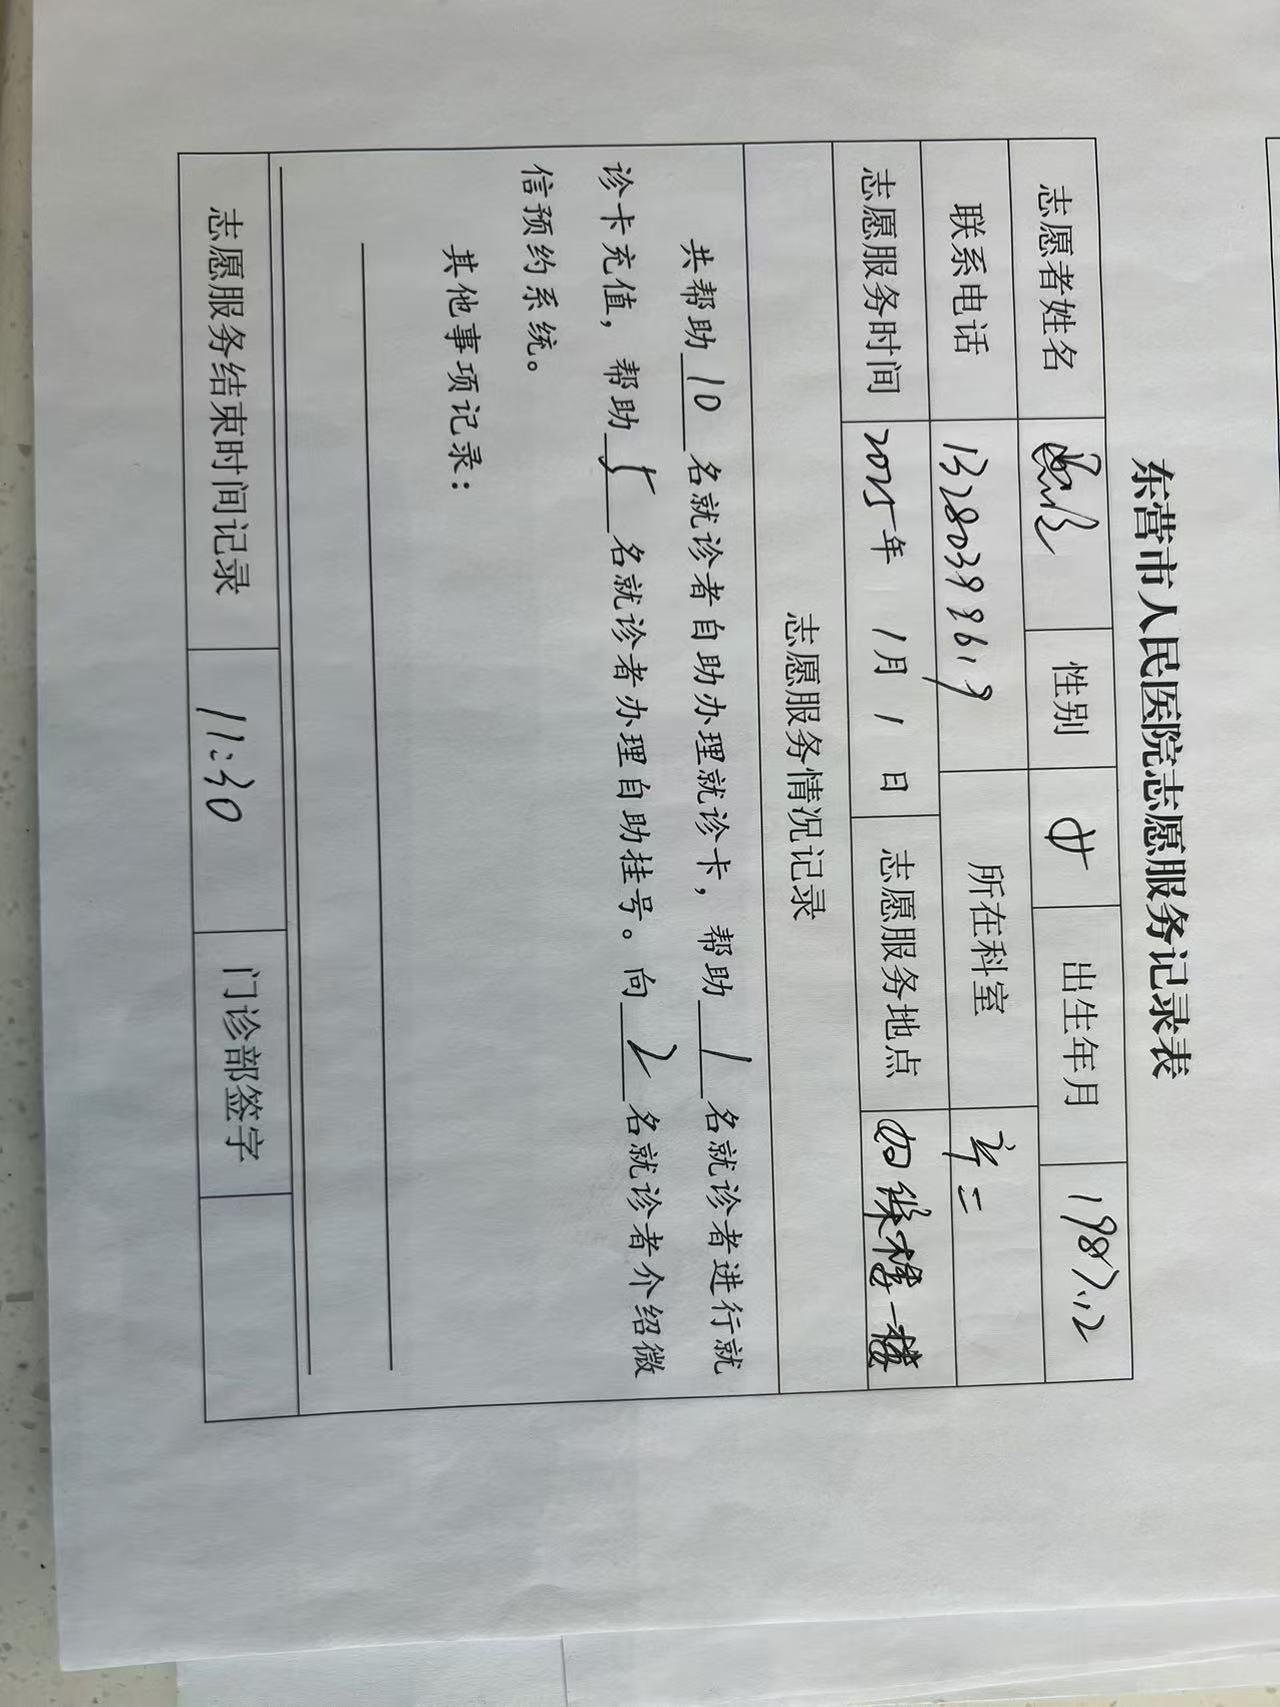 东营市人民医院志愿服务记录表
志愿者姓名 性别 女 出生年月 1987.12
联系电话 所在科室
志愿服务时间 2025年 1月 1日 志愿服务地点 妇保楼一楼
志愿服务情况记录
共帮助 10 名就诊者自助办理就诊卡，帮助 1 名就诊者进行就
诊卡充值，帮助 5 名就诊者办理自助挂号。向 2 名就诊者介绍微
信预约系统。
其他事项记录：
志愿服务结束时间记录 11:30 门诊部签字